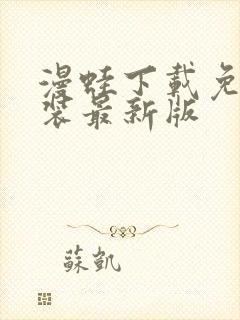 漫蛙下载免
装最新版
蘇凱